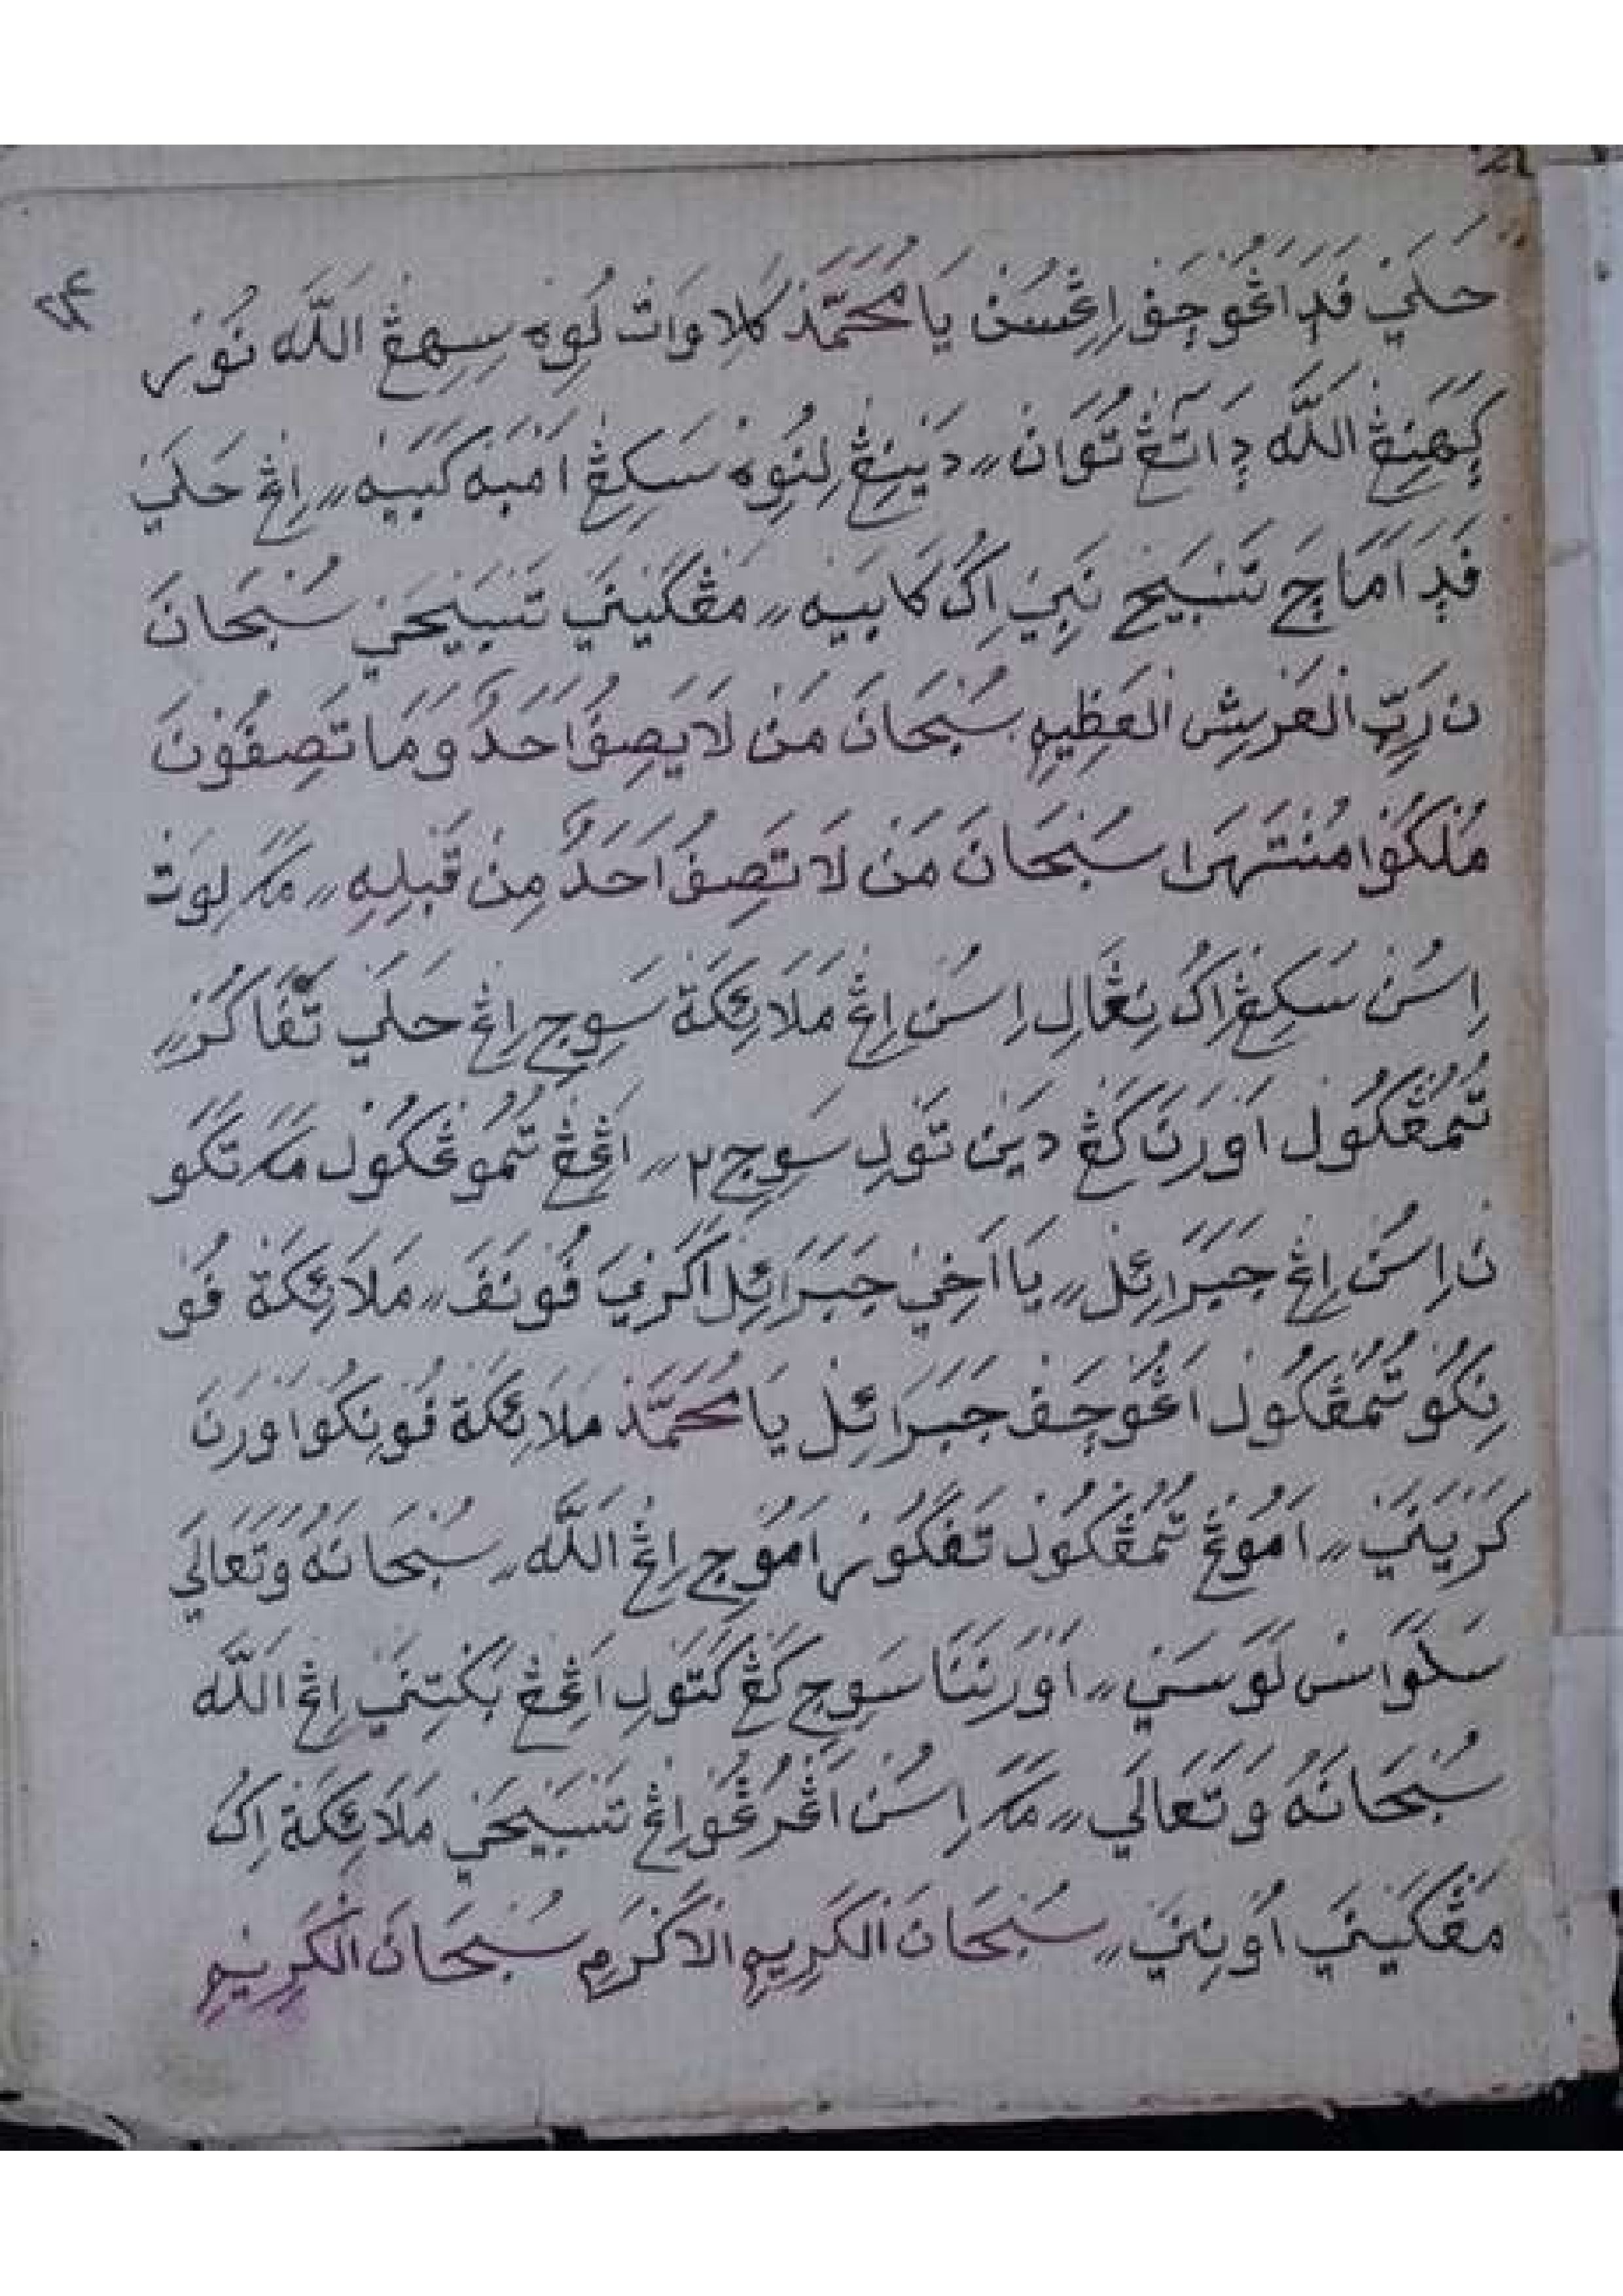 ٢٤
حَلَيْ فَدَ اَڠُوْجَفْ اِڠْسُنْ يَا مُحَمَّدْ كَلِاوَاتْ لُوِهْ سِهِڠْ اَللَّه نُوْرْ
كَهَنِڠْ اَللَّه دٍاتَڠْ تُوَانْ ٫٫ دَيْنِڠْ لِنُوِهْ سَكِڠْ اُمْبَهْ كَبَيْه ٫٫ اِڠْ حَلَيْ
فَدَ اَمَاچَ تَسْبَيْح نَبِيْ اِكُ كَابَيْه ٫٫ مَڠْكَيْنَيْ تَسْبَيْحَيْ سُبْحَانَ
نَ رَبِّ الْعَرْشِ الْعَظِيْمِ سُبْحَانَ مَنْ لَا يَصِفُ اَحَدٌ وَمَا تَصِفُوْنَ
مُلْكُوْا مُنْتَهَرَا سُبْحَانَ مَنْ لَا تَصِفُ اَحَدٌ مِنْ قَبْلِهِ ٫٫ مَكَ لِوَتْ
اِسُنْ سَكِڠْ اِكُ نِڠَالِ اِسُنْ اِڠْ مَلَائِكَةْ سَوِجِ اِڠْ حَلَيْ تَفَاكُرْ ٫٫
تُمُڠْكُولْ اَوْرَنَ كَڠْ دَيْنْ تَوْلِ سَوِجِ٢ ٫٫ اَڠِڠْ تُمُوڠْكُولْ مَكَ تَكَو
نَ اِسُنْ اِڠْ جَبَرَائِلْ ٫٫ يَا اَخِيْ جَبَرَائِلْ اَكَرْيَ فُوْنَفَ ٫٫ مَلَائِكَةْ فُوْ
نِكُوْ تُمُڠْكُولْ اَڠُوْجَفْ جَبَرَائِلْ يَا مُحَمَّدْ مَلَائِكَةْ فُوْنِكُوْ اَوْرَنَ
كَرْيَنَيْ ٫٫ اَمُوْڠْ تُمُڠْكُولْ تَفَكُوْرْ اَمُوْجِ اِڠْ اَللَّه ٫٫ سُبْحَانَهُ وَتَعَالَيْ
سَلَوَاسْ لَوَسَيْ ٫٫ اَوْرَنَنَا سَوِجِ كَڠْ كَتَوْلِ اَڠِڠْ بَكْتِنَيْ اِڠْ اَللَّه
سُبْحَانَهُ وَتَعَالَيْ ٫٫ مَكَ اِسُنْ اَڠْرُڠُوْ اِڠْ تَسْبَيْحَيْ مَلَائِكَةْ اِكُ
مَڠْكَيْنَيْ اُوْنِنَيْ ٫٫ سُبْحَانَ الْكَرِيْمِ الْاَكْرَمِ سُبْحَانَ الْكَرِيْمِ